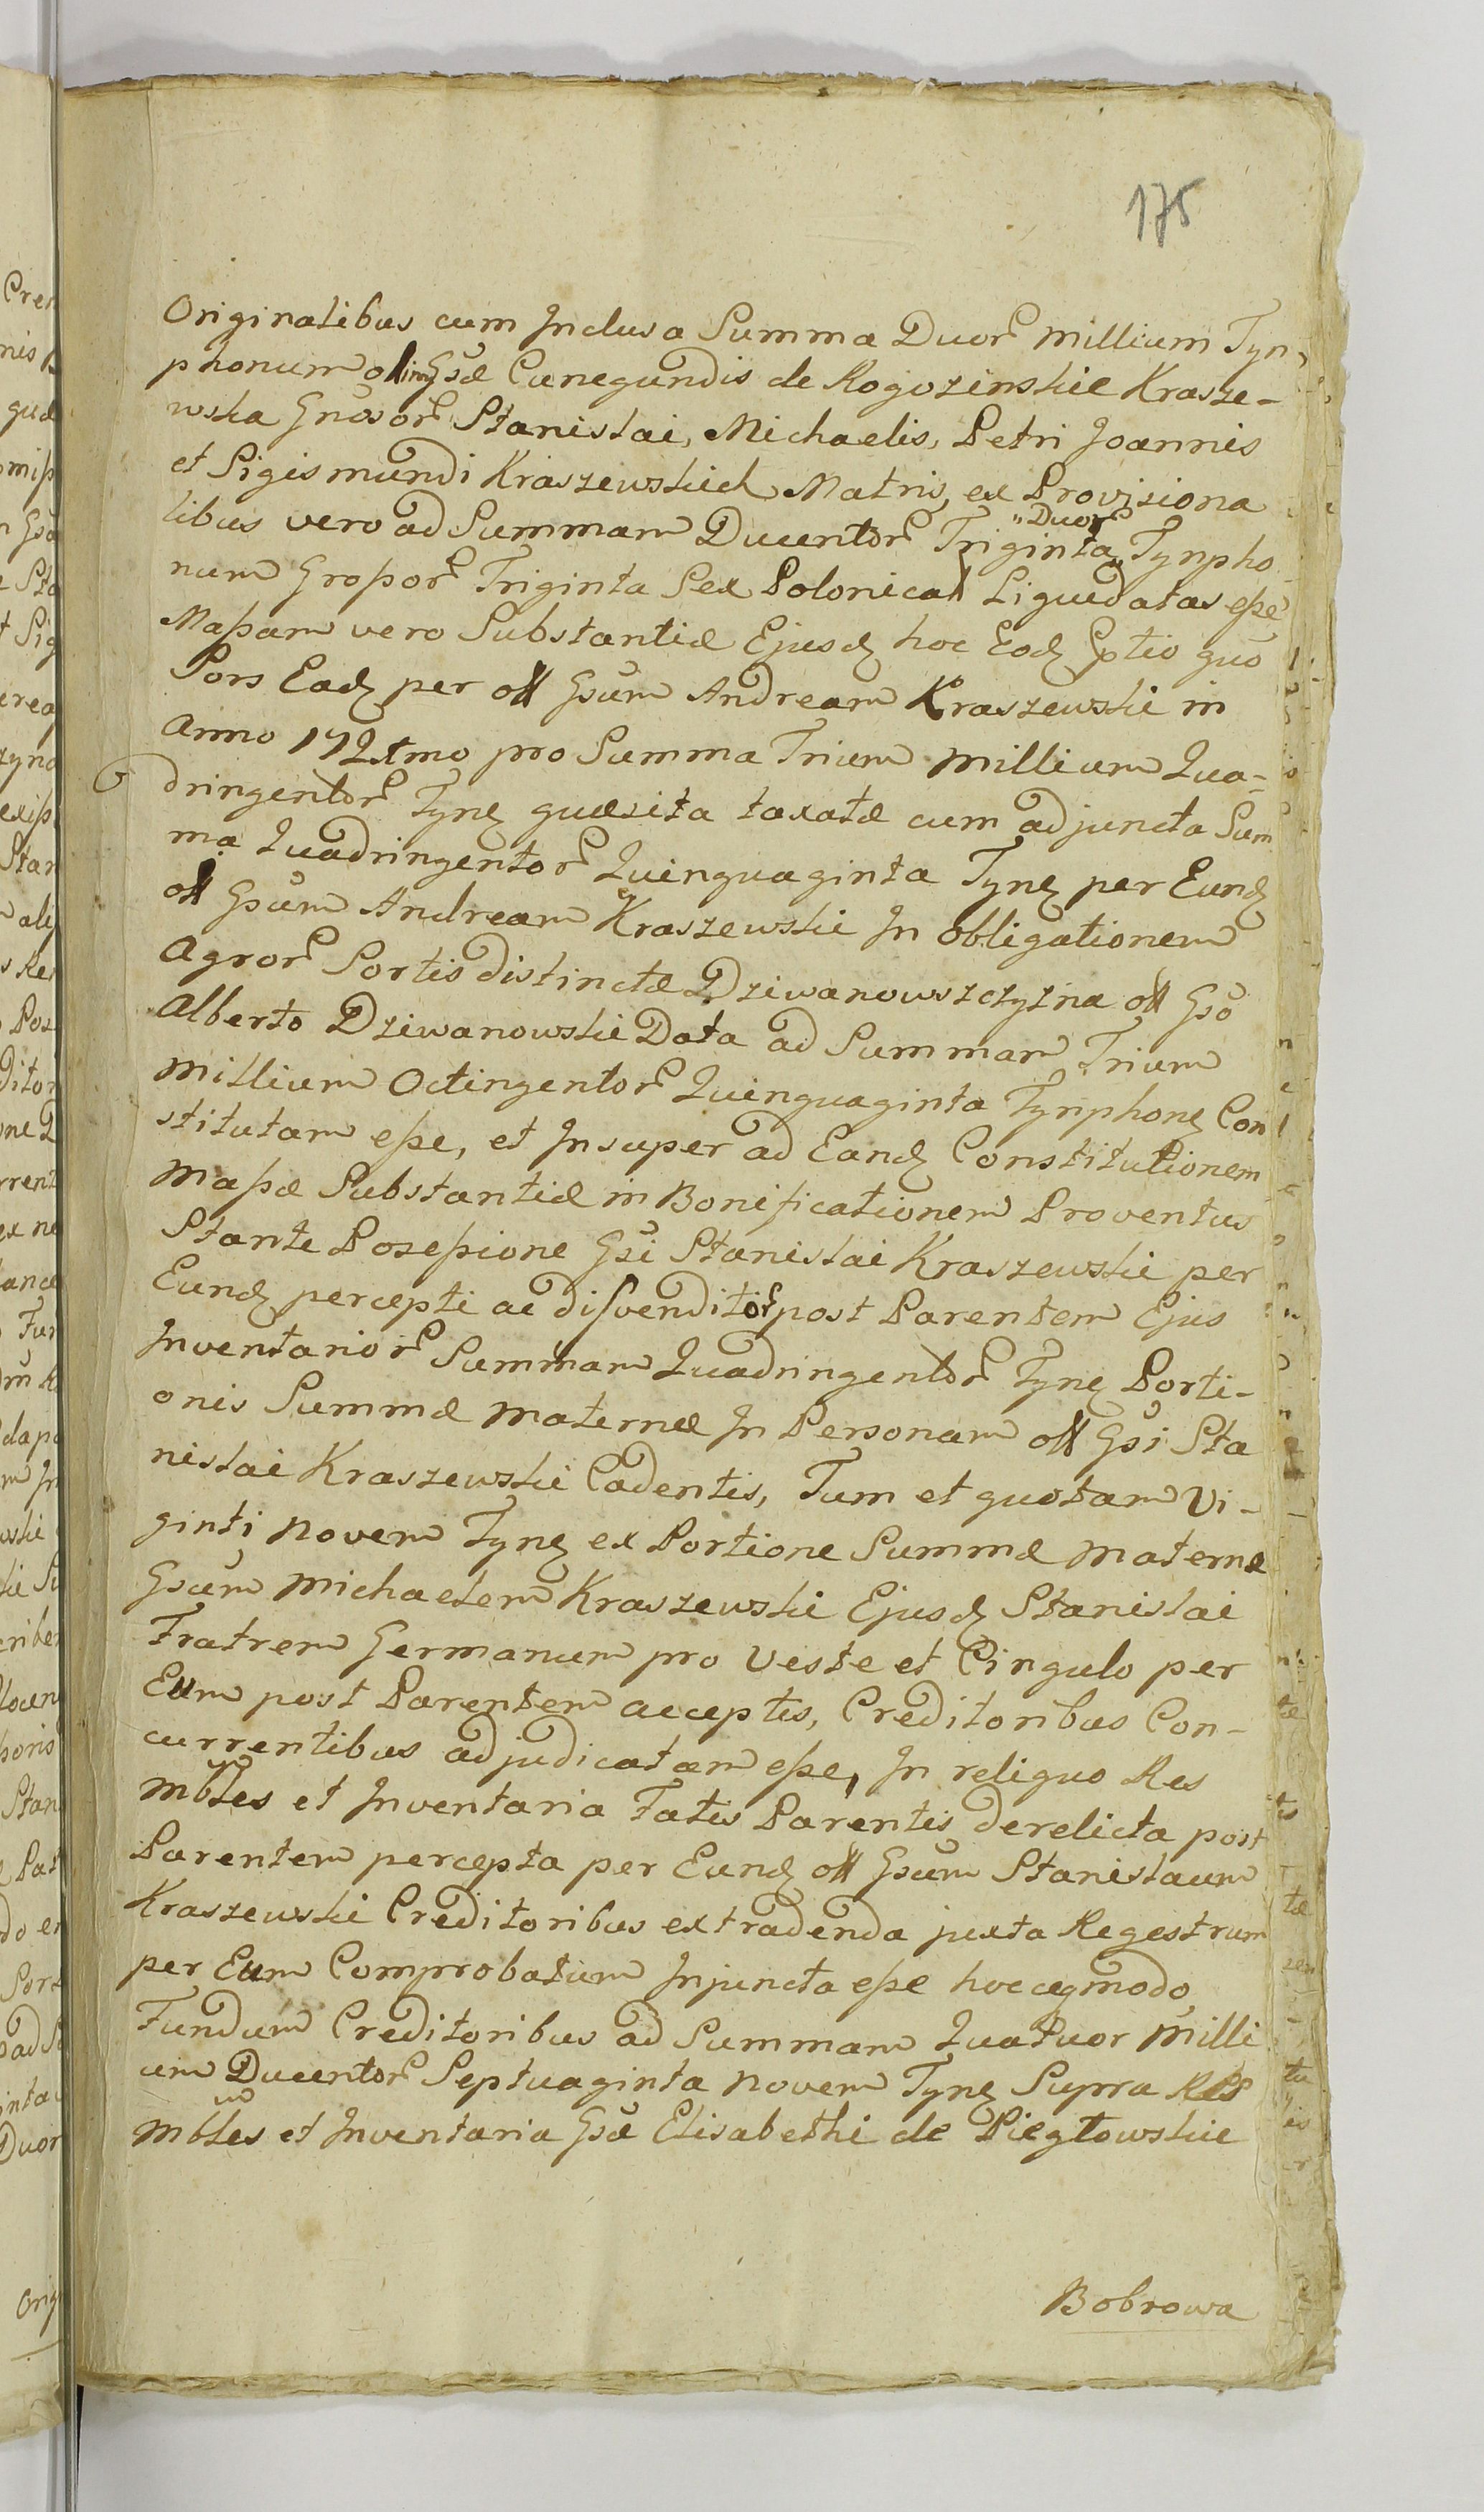 175
Originalibus cum Inclusa Summa Duor Millium Tyn
phonum olim Gsæ Cunegundis de Rogozinskie Krasze-
wska Gnosor Stanislai, Michaelis, Petri Joannis
et Sigismundi Kraszewskich Matris, ex Provisiona
libus vero ad Summam Ducentor Triginta "Duor" Tynpho
num Groszor Triginta Sex Polonical Liquidatas eße
Maßam vero Substantiæ Ejusdz hoc Eodz ptio quo
Sors Eadz per oll Gsum Andream Kraszewski in
Anno 172tmo pro Summa Trium Millium Qua-
dringentor Tynz quæsita taxatæ cum adjuncta Sum
ma Quadringentor Quinquaginta Tynz per Eundz
oll Gsum Andream Kraszewski In obligationem
Agror Sortis distinctæ Dziwanowszczyzna oll Gso
Alberto Dziwanowski Data ad Summam Trium
Millium Octingentor Quinquaginta Tynphonz Con
stitutam eße, et Insuper ad Eandz Constitutionem
Maßæ Substantiæ in Bonificationem Proventus
Stante Poseßione Gsi Stanislai Kraszewski per
Eundz percepti ac disvenditor post Parentem Ejus
Inventarior Summam Quadringentor Tynz Porti-
onis Summæ Maternæ In Personam oll Gsi Sta
nislai Kraszewski Cadentis, Tum et quotam Vi-
ginti Novem Tynz ex Portione Summæ Maternæ
Gsum Michaelem Kraszewski Ejusdz Stanislai
Fratrem Germanum pro Veste et Cingulo per
Eum post Parentem acceptis, Creditoribus Con-
currentibus adjudicatam eße, In reliquo Res
Mbles et Inventaria Fatis Parentis derelicta post
Parentem percepta per Eundz oll Gsum Stanislaum
Kraszewski Creditoribus extradenda juxta Regestrum
per Eum Comprobatum Injuncta eße hocqmodo
Fundum Creditoribus ad Summam Quatuor Milli
um Ducentor Septuaginta Novem Tynz Supra Res
Mbles et Inventaria Gsæ Elisabethi de Pieglowskie
Bobrowa